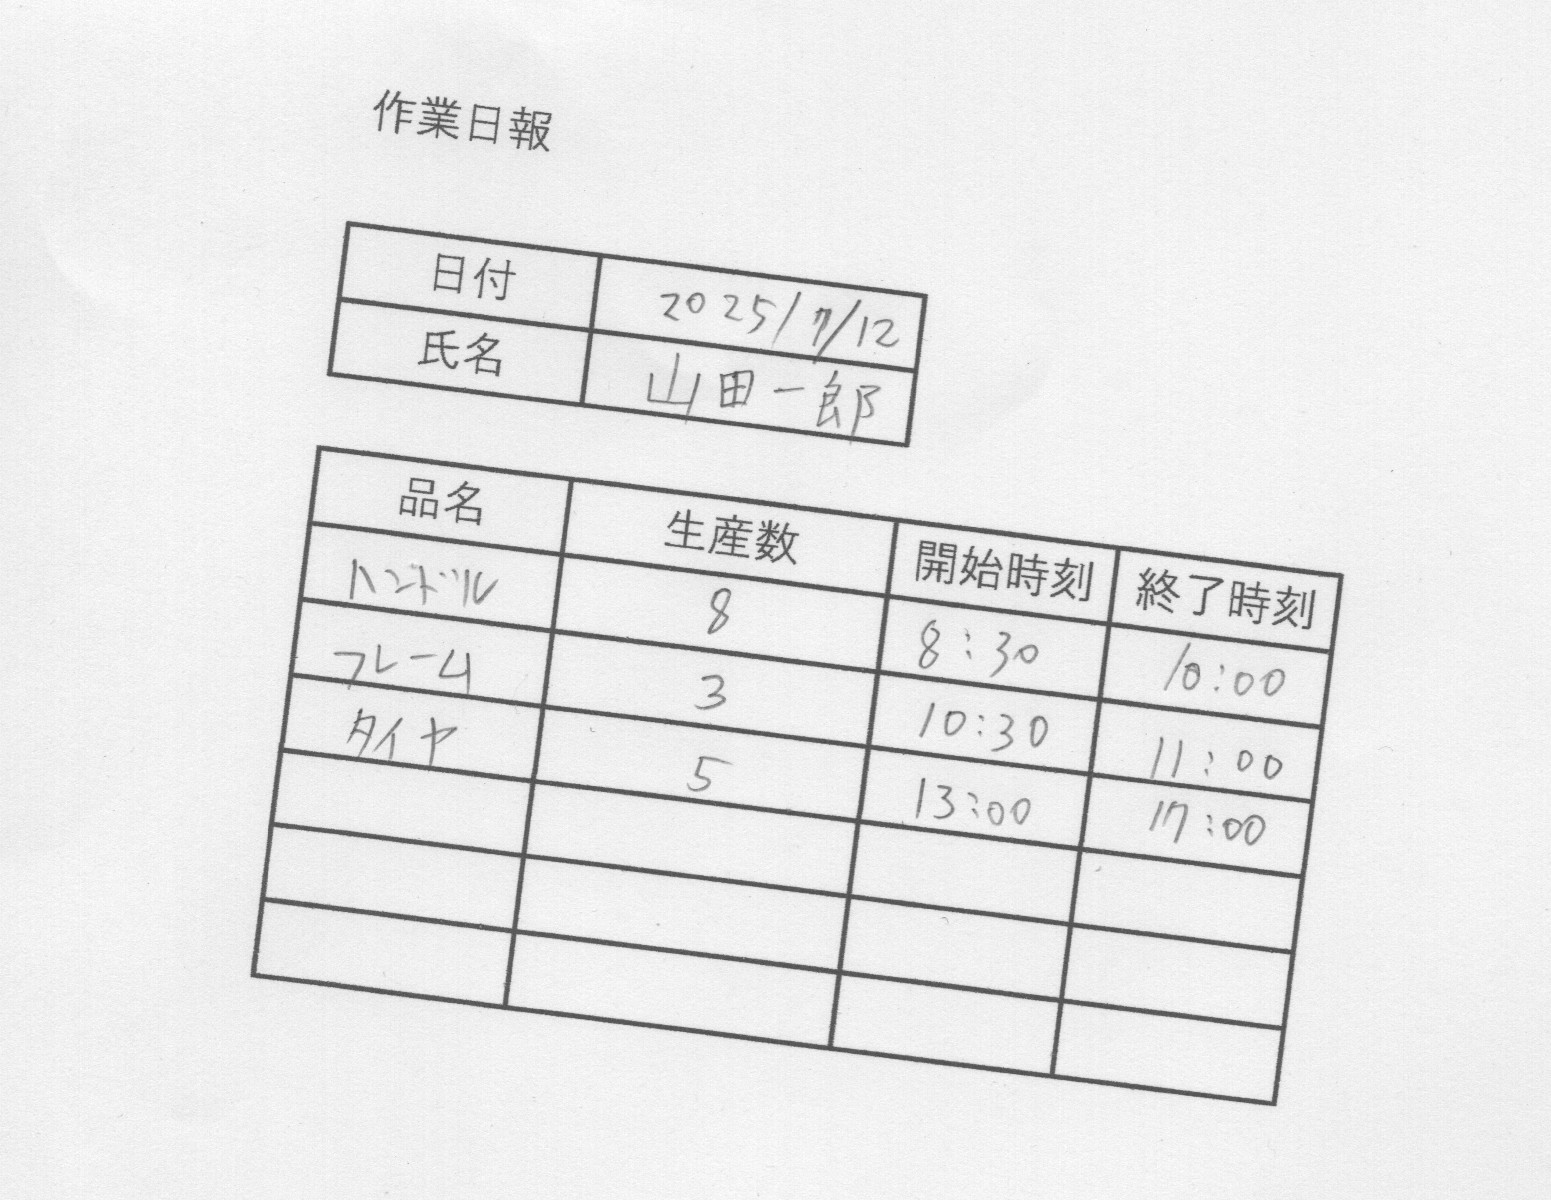 作業日報
日付 2025/7/12
氏名 山田一郎
品名 生産数 開始時刻 終了時刻
ハンドル 8 8:30 10:00
フレーム 3 10:30 11:00
タイヤ 5 13:00 17:00